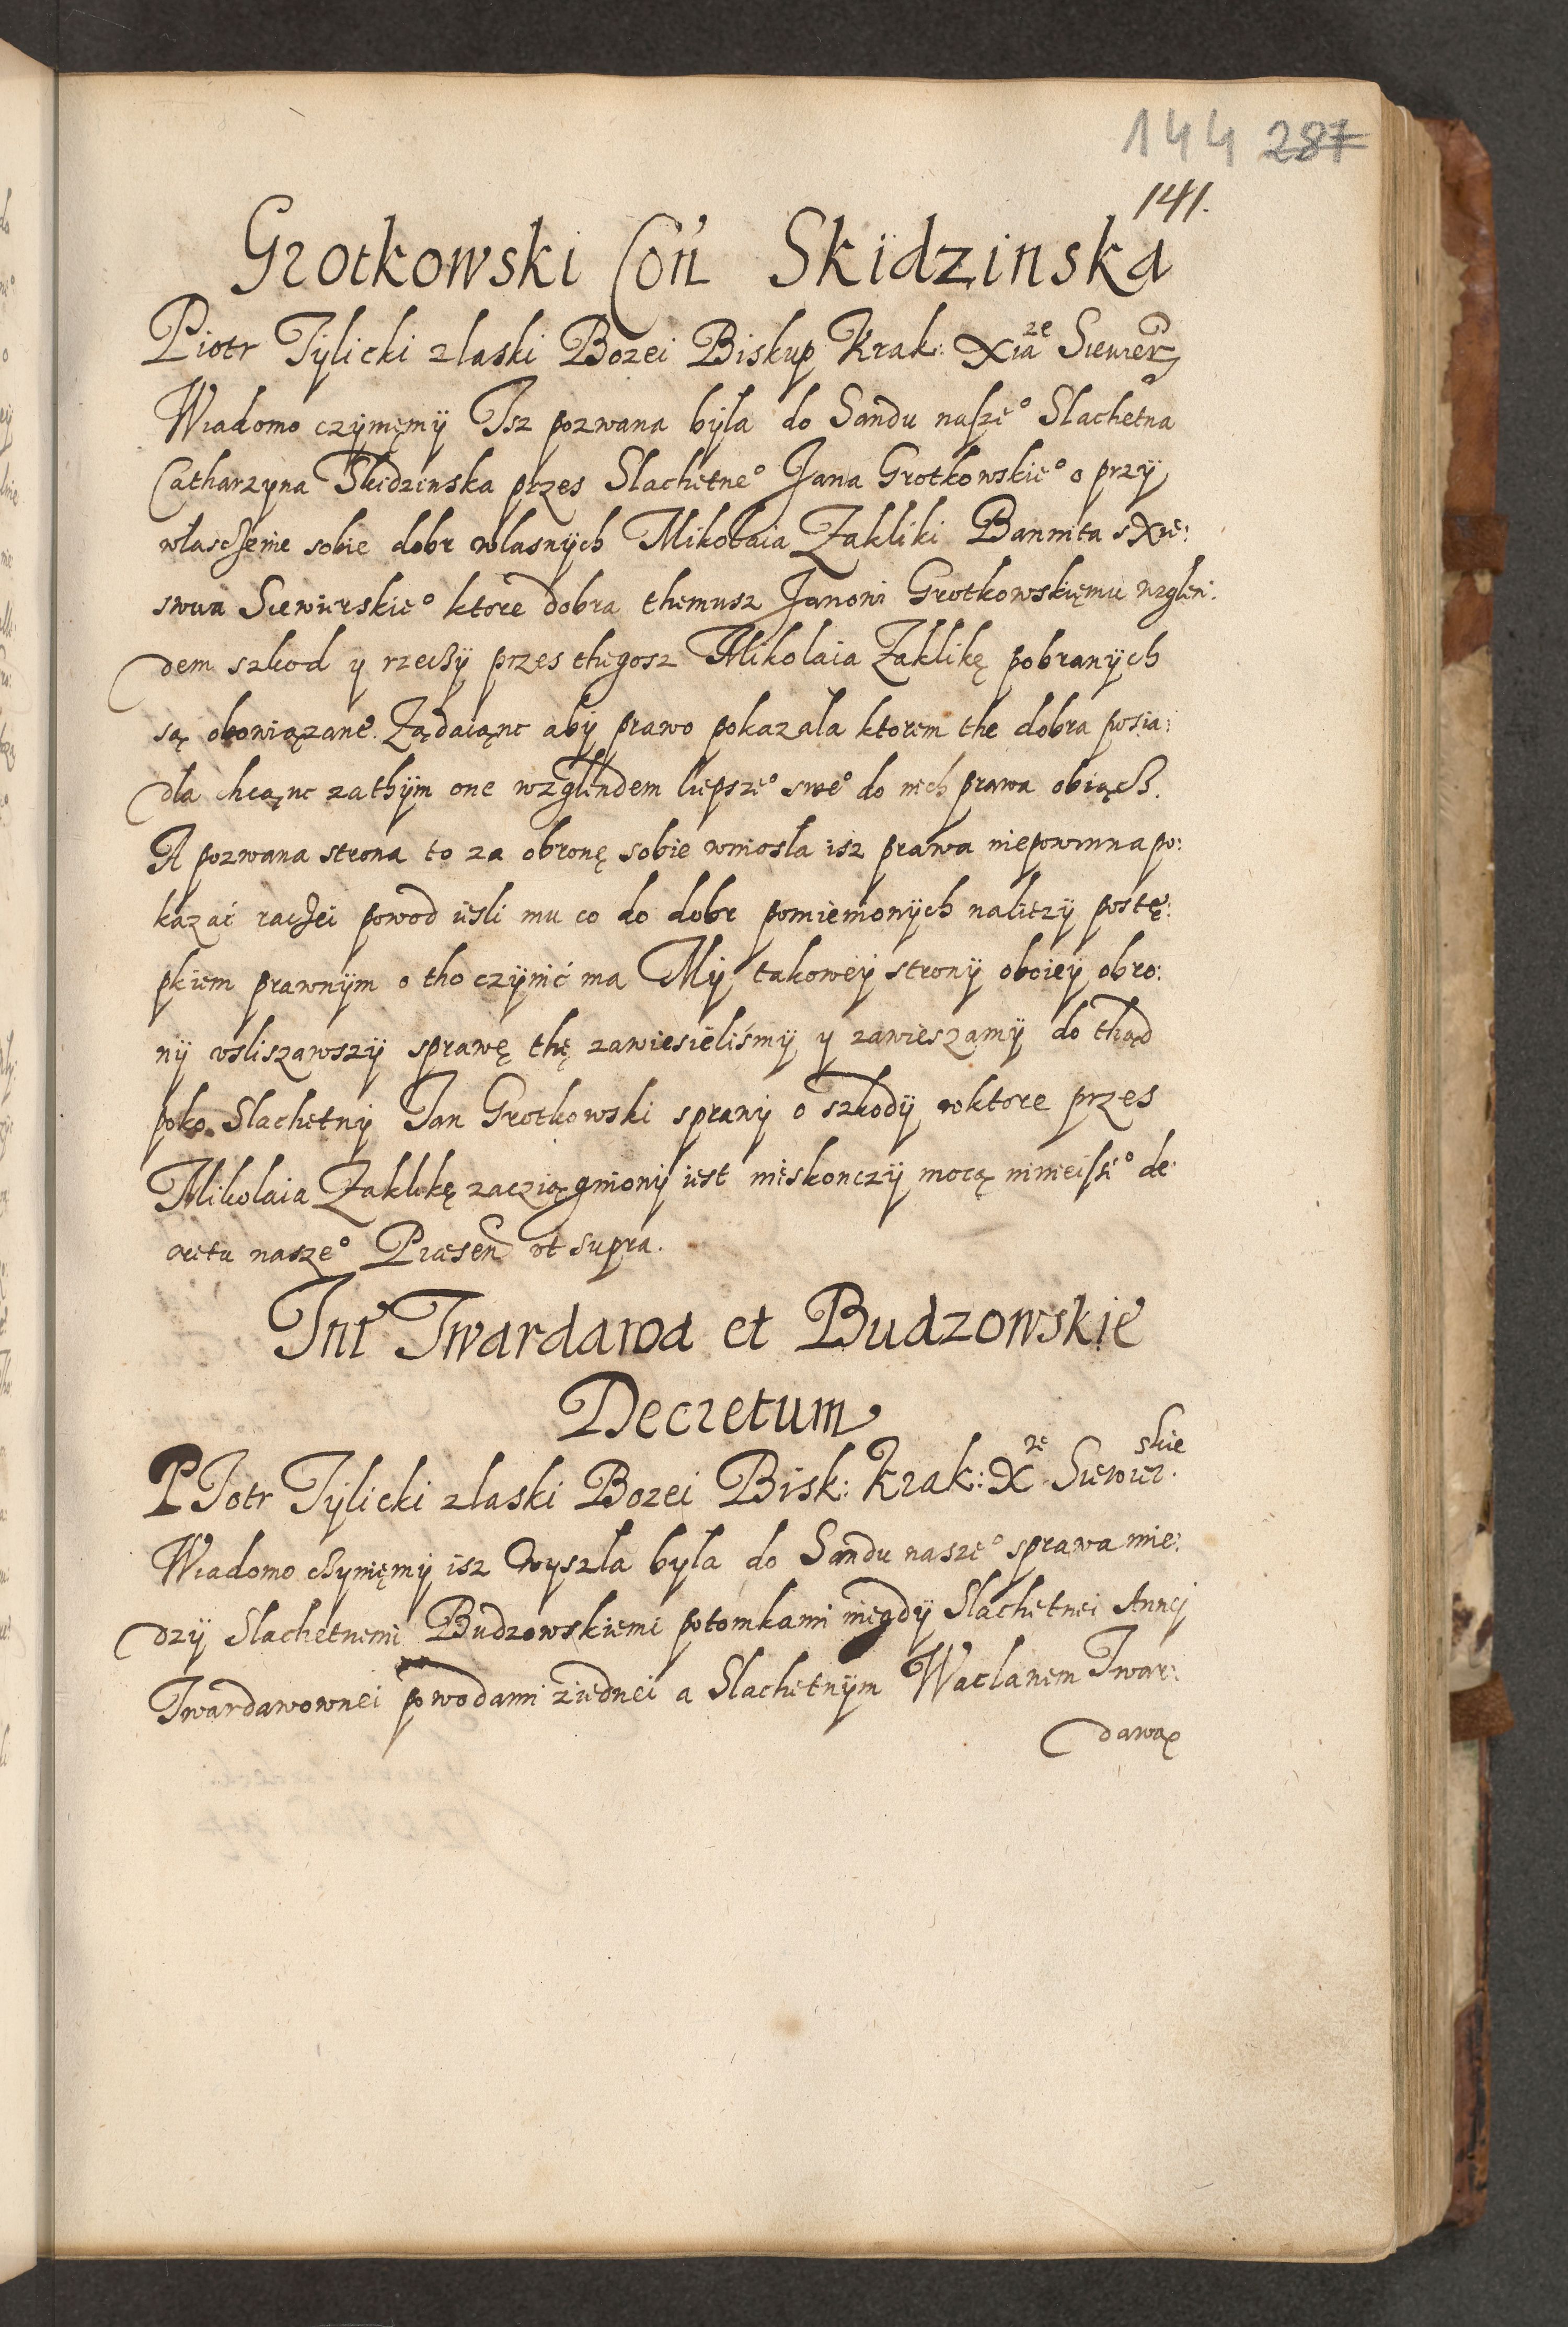 144 287
141.
Grotkowski Con Skidzinska
Piotr Tÿlicki z laski Bozei Biskup Krak: Xiaze Siewier
Wiadomo czÿnięmÿ Isz pozwana bÿla do Sandu naszeº Slachetna
Catharzyna Skidzinska przes Slachetneº Jana Grotkowskieº o przÿ
właszczenie sobie dobr własnÿch Mikołaia Zakliki Bannita s Xię:
stwa Siewierskieº ktore dobra themusz Janowi Grotkowskięmu wzglen:
dem szkod y rzeczÿ przes thegosz Mikolaia Zaklikę pobranÿch
są obowiązane. Ządaiąnc abÿ prawo pokazala ktorem the dobra posia:
dla chcąnc zathÿm one wzglendem liepszeº sweº do nich prawa obiącz.
A pozwana strona to za obronę sobie wniosła isz prawa niepowinna po:
kazać raczei powod iesli mu co do dobr pomienionÿch nalieżÿ postę:
pkiem prawnÿm o tho czÿnić ma Mÿ takowéÿ stronÿ oboieÿ obro:
nÿ usliszawszÿ sprawę thę zawiesieliśmÿ y zawieszamÿ do thąd
poko Slachetnÿ Jan Grotkowski sprawÿ o szkodÿ woktore przes
Mikolaia Zaklikę zacziągnionÿ iest nieskonczÿ mocą ninieisseº de
cretu naszeº Præsen ut supra.
Int Twardawa et Budzowskie
Decretum
PIotr Tÿlicki z laski Bozei Bisk: Krak: Xze Siewier.skie
Wiadomo czynięmÿ isz Wyszla byla do Sandu naszeº sprawa mie:
dzÿ Slachetnemi Budzowskiemi potomkami niegdÿ Slachetnei Annÿ
Twardawownei powodami ziednei a Slachetnÿm Waclawem Twar:
dawą